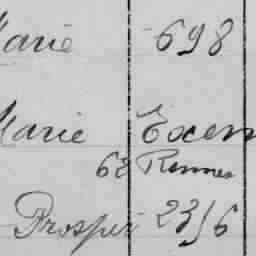 Marie 698
Marie Exem
62 Rennes
Prosper 2356